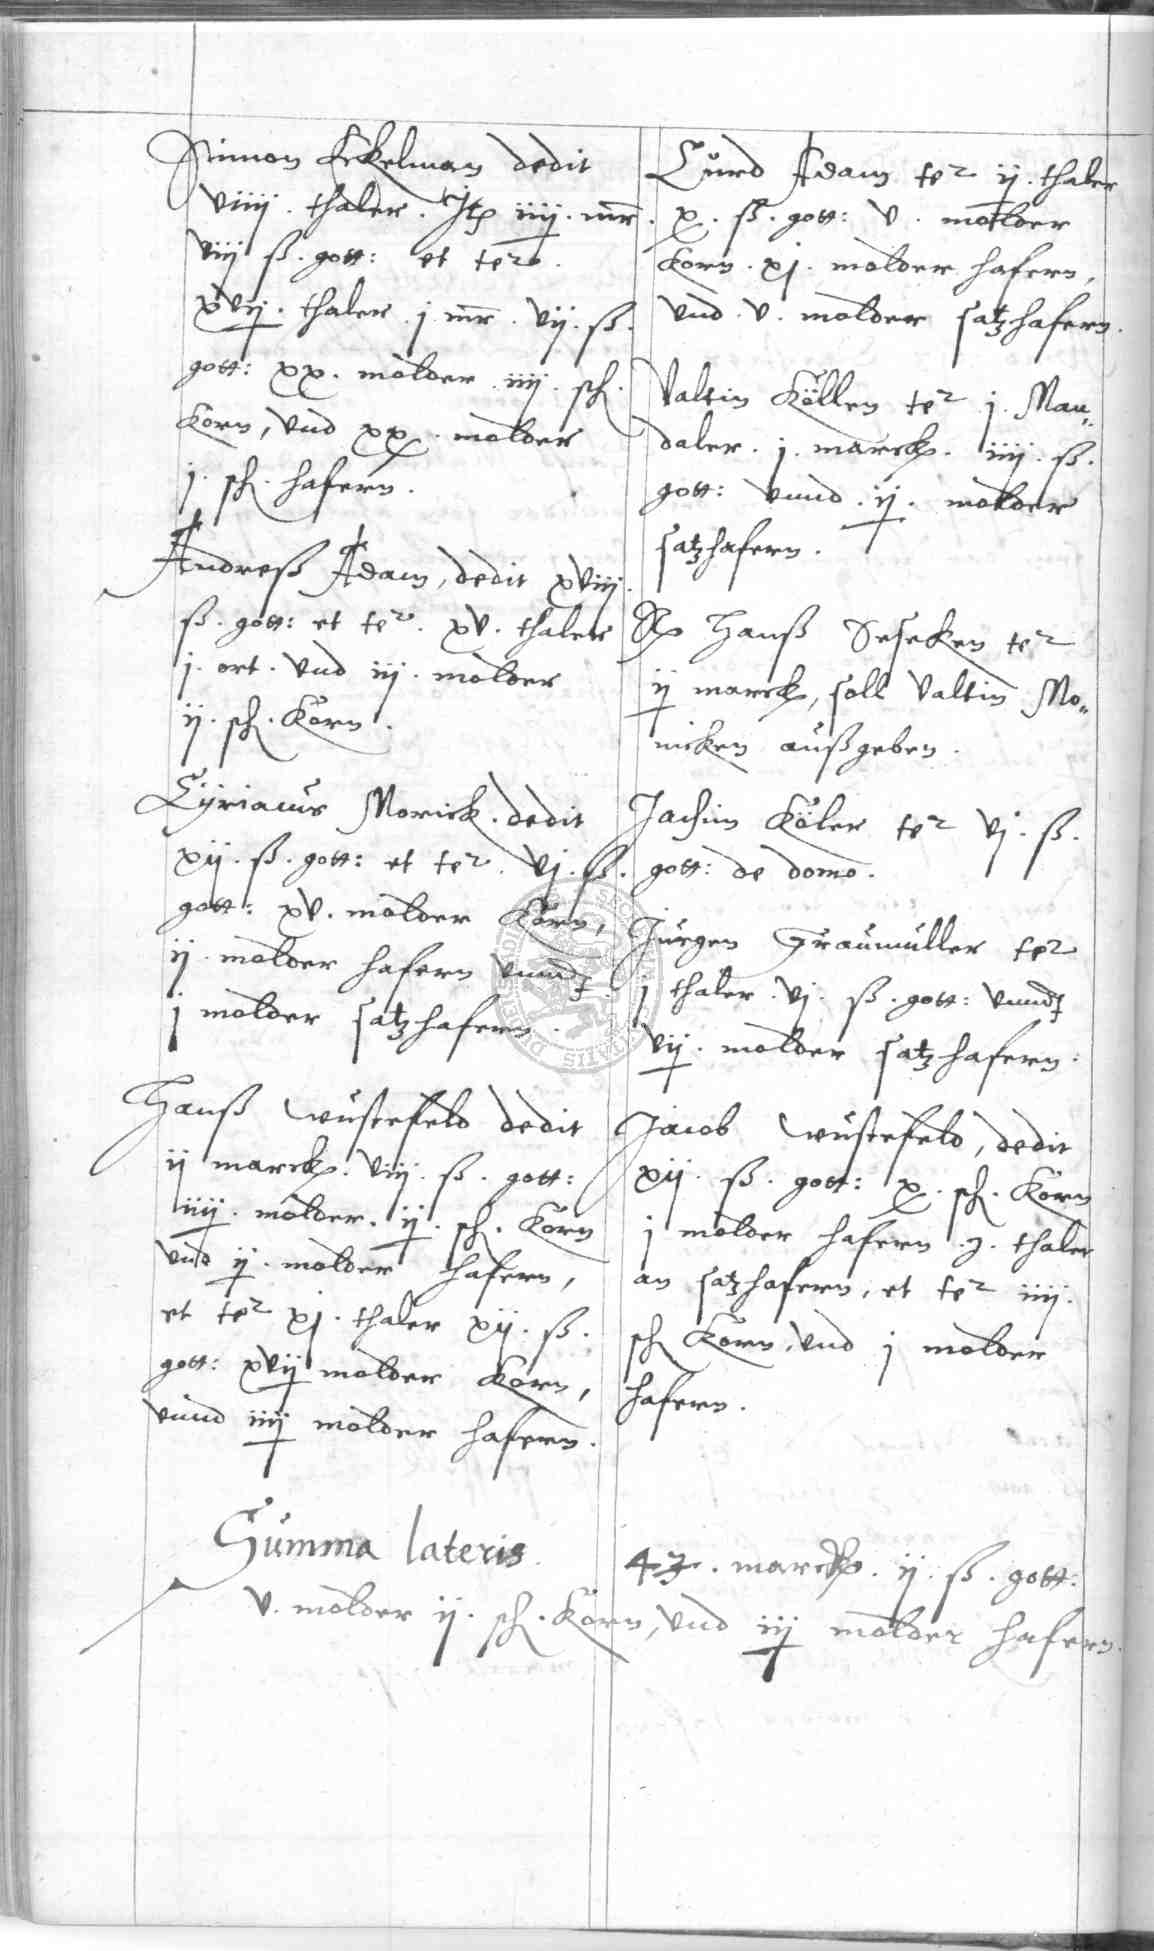 Simon Eckelman dedit
viiij. thaler. Itē iiij. mr̄.
viij ß. gott: et tet̄.
xvij. thaler. j. mr̄. vij. ß.
gott: xx. molder. iiij. sch.
Korn, vnd xx. molder
j. sch. hafern.
Andreß Adam, dedit xviij.
ß. gott: et tet̄. xv. thaler
j. ort. vnd iij. molder
ij. sch. Korn.
Cyriacus Morick. dedit
xij. ß. gott: et tet̄. vj. ß.
gott: xv. molder Korn,
ij. molder hafern vnnd
j molder satzhafern.
Hanß Wustefeld dedit
ij marck. viij. ß. gott:
iiij. molder. ij. sch. Korn
vnd ij. molder hafern,
et tet̄ xj. thaler xij. ß.
gott: xvij molder Korn,
vnnd iiij molder hafern.
Curd Adam tet̄ ij. thaler
x. ß. gott: v. molder
Korn. xj. molder hafern,
vnd. v. molder satzhafern.
Valtin Köllen tet̄ j. Mau„
daler. j. marck. iiij. ß.
gott: vnnd. ij. molder
satzhafern.
Hanß Seseken tet̄
ij marck, soll Valtin Mo„
nicken außgeben.
Jachim Köler tet̄ vj. ß.
gott: de domo.
Jurgen Graumuller tet̄
j thaler. vj. ß. gott: vnnd
vij. molder satzhafern.
Jacob Wustefeld, dedit
xij. ß. gott: x. sch. Korn
j molder hafern. j. thaler
an satzhafern, et tet̄ iiij.
sch Korn, vnd j molder
hafern.
Summa lateris 43. marck. ij. ß. gott:
v. molder ij. sch. Korn, vnd iij molder hafern.